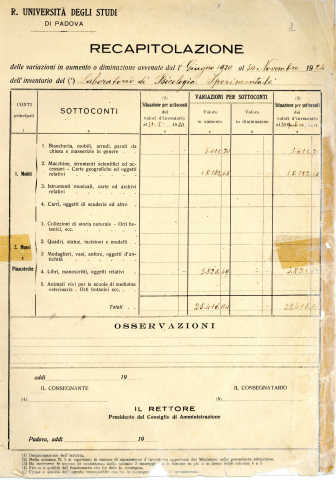 R. UNIVERSITÀ DEGLI STUDI
DI PADOVA
RECAPITOLAZIONE
delle variazioni in aumento o diminuzione avvenute dal 1° Giugno 1920 al 30 Novembre 1924
dell'inventario del (¹) Laboratorio di Psicologia Sperimentale
CONTI principali
SOTTOCONTI
Situazione per sottoconti dei valori d'inventario al 31-5-1920
VARIAZIONI PER SOTTOCONTI
Valore in aumento
Valore in diminuzione
Situazione per sottoconti dei valori d'inventario
1. Mobili
1. Biancheria, mobili, arredi, parati da chiesa e masserizie in genere
2. Macchine, strumenti scientifici ed accessori - Carte geografiche ed oggetti relativi
3. Istrumenti musicali, carte ed archivi relativi
4. Carri, oggetti di scuderia ed altro
2. Musei e Pinacoteche
1. Collezioni di storia naturale - Orti botanici, ecc.
2. Quadri, statue, incisioni e modelli
3. Medaglieri, vasi, anfore, oggetti d'antichità
4. Libri, manoscritti, oggetti relativi
5. Animali vivi per le scuole di medicina veterinaria - Orti botanici ecc.
Totali
25.416.04
OSSERVAZIONI
addì 19
addì 19
IL CONSEGNANTE
IL CONSEGNATARIO
(4)
(5)
IL RETTORE
Presidente del Consiglio di Amministrazione
Padova, addì 19
(1) Denominazione dell'Istituto.